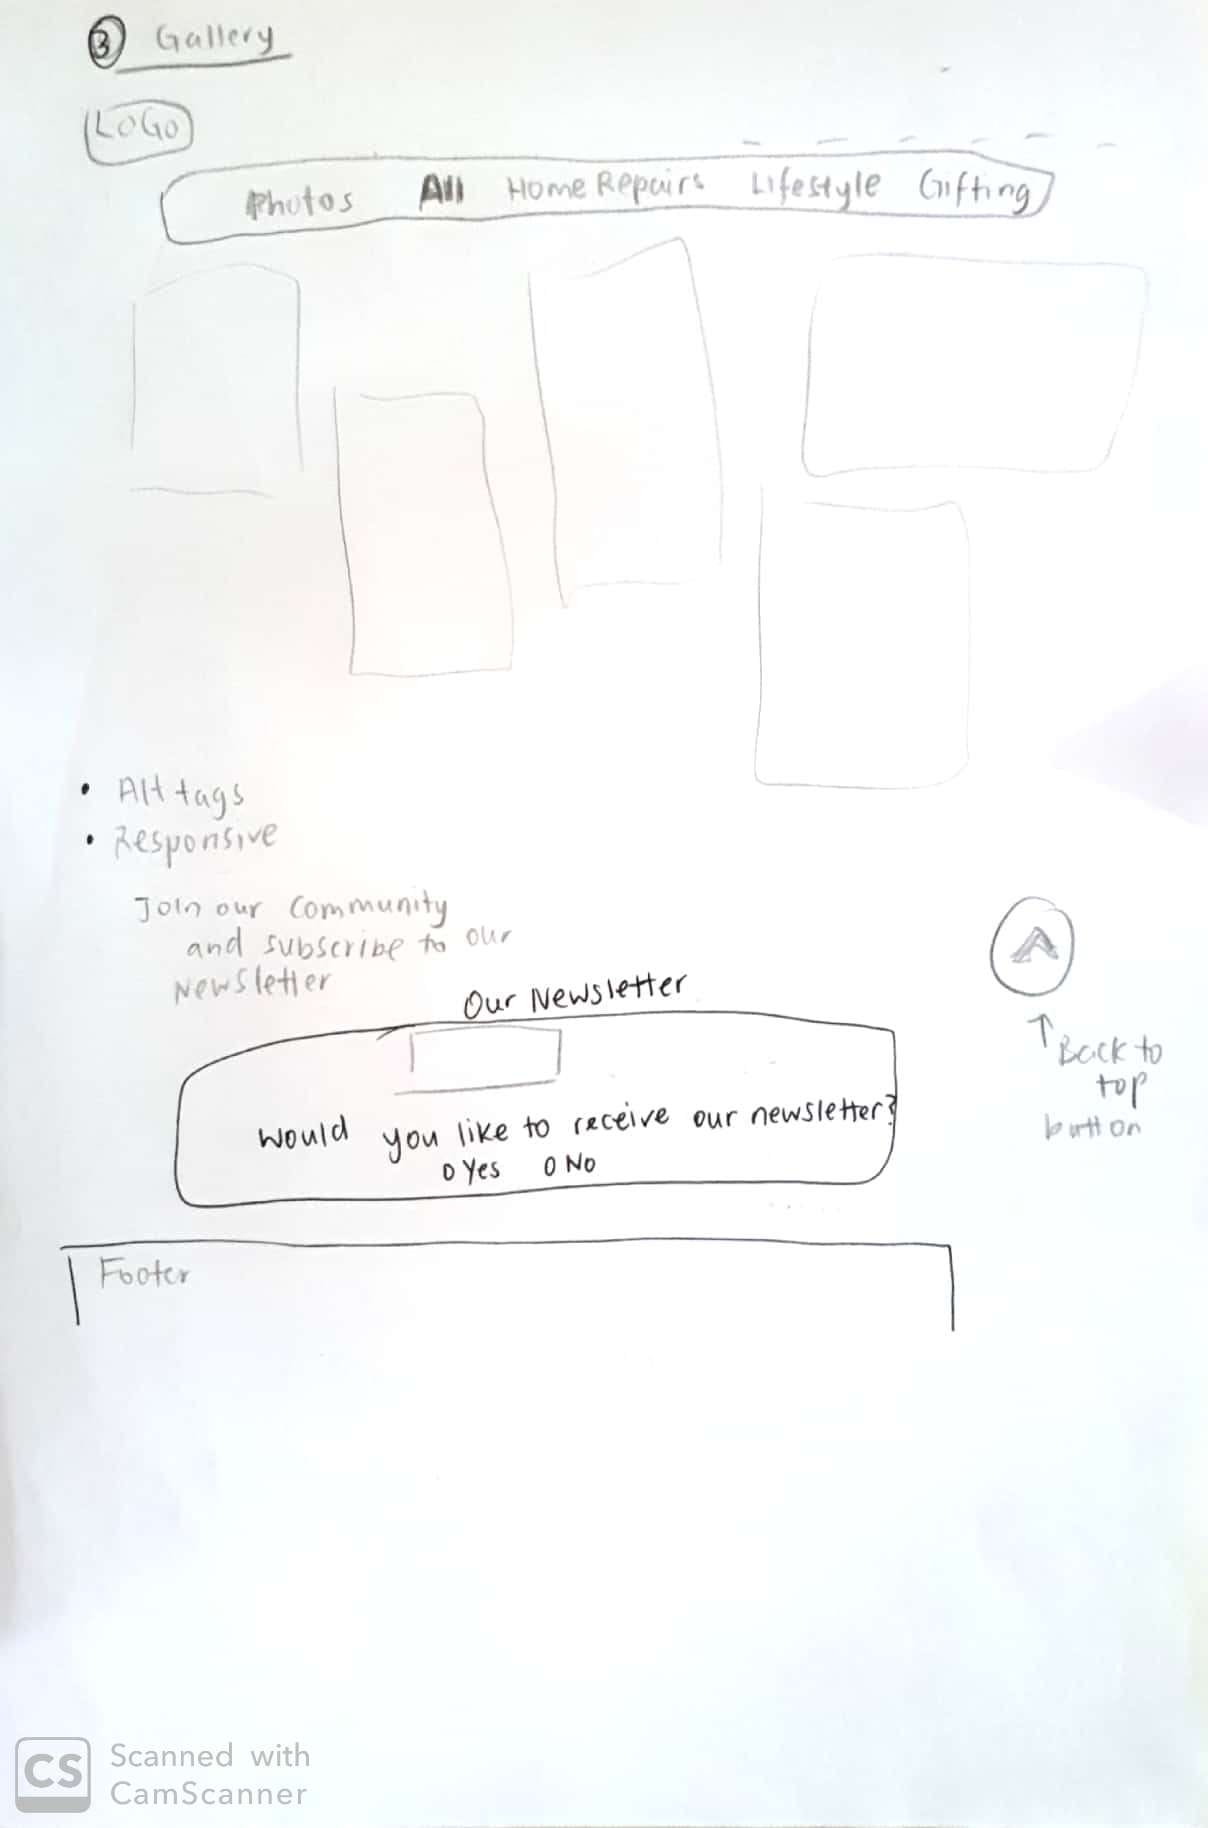 3 Gallery
LOGO
Photos All Home Repairs Lifestyle Gifting
• Alt tags
• Responsive
Join our community
and subscribe to our
Newsletter
Our Newsletter
would you like to receive our newsletter?
O Yes O No
Back to
top
button
Footer
CS Scanned with
CamScanner